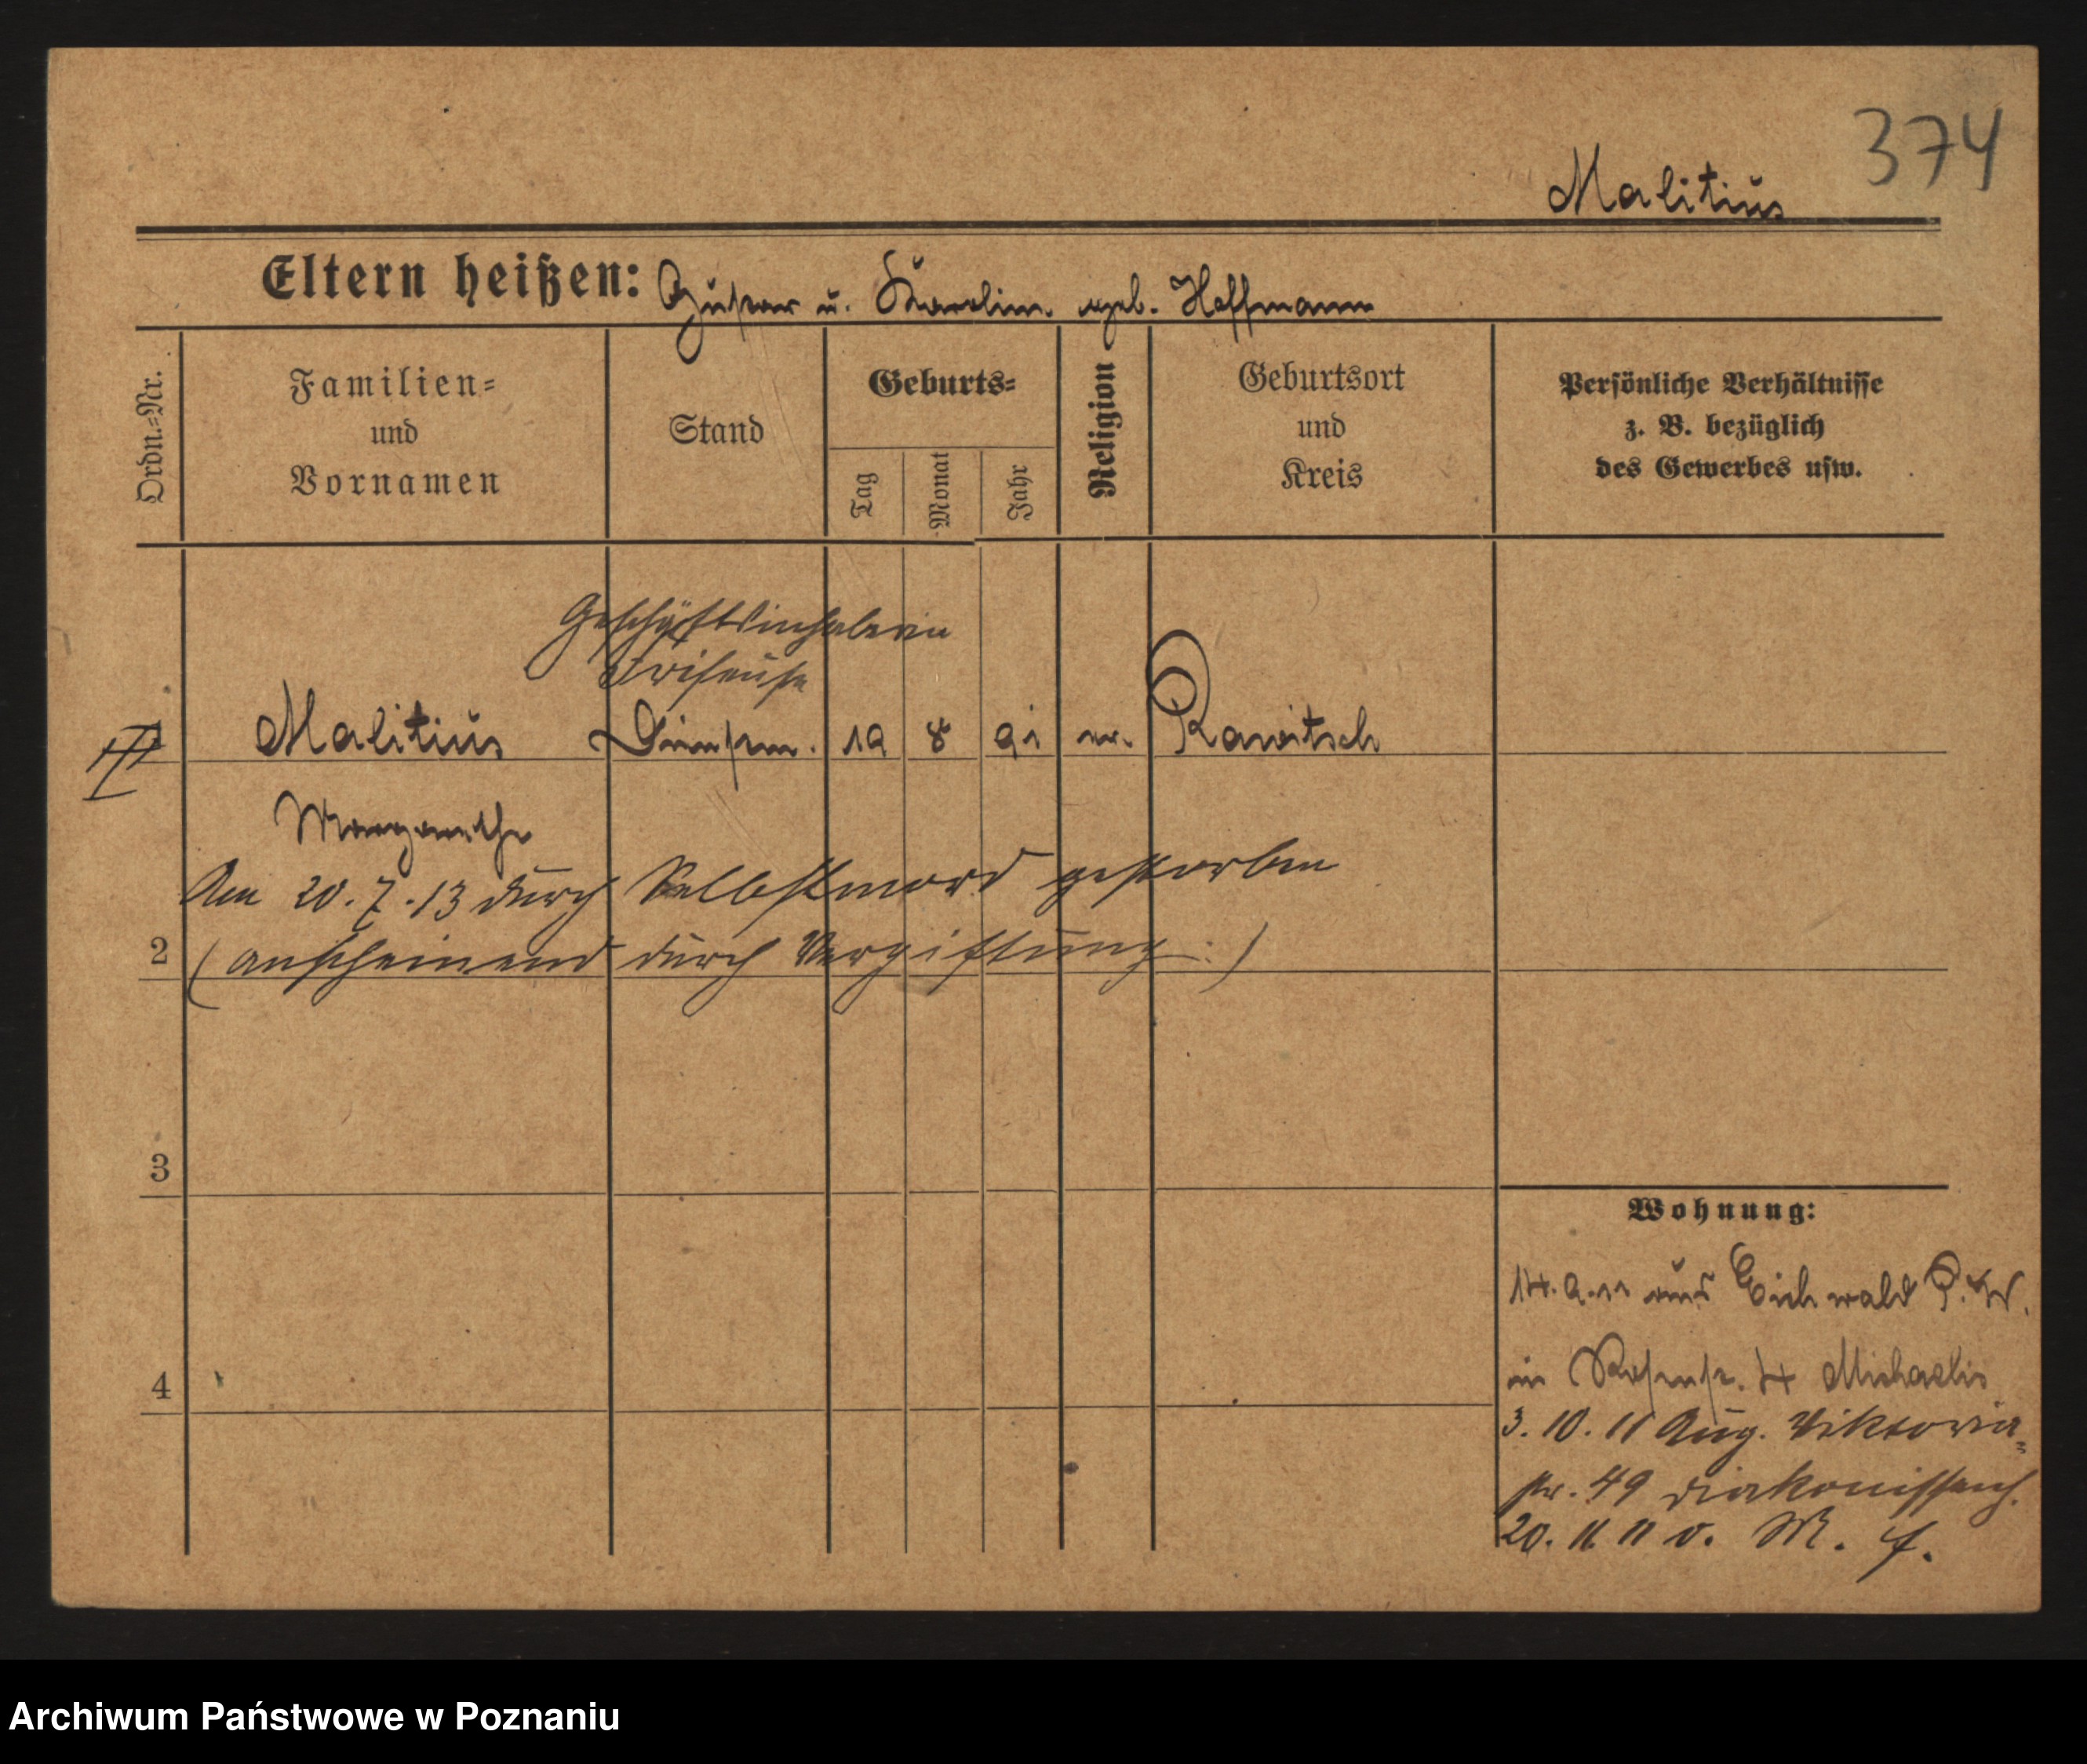 374
Malitius
Eltern heißen: Gustav u. Karolin. geb. Hoffmann
Ordn.=Nr.
Familien=
und
Vornamen
Stand
Geburts=
Tag
Monat
Jahr
Religion
Geburtsort
und
Kreis
Persönliche Verhältnisse
z. B. bezüglich
des Gewerbes usw.
Geschäftsinhaberin
Friseuse
Malitius Dienstm. 19 8 91 ev. Rawitsch
Margarethe
Am 20.7.13 durch Selbstmord gestorben
2 (anscheinend durch Vergiftung:)
3
4
Wohnung:
14.9.11 aus Eichwald P.W.
in 4 Michaelis
3.10.11 Aug. Viktoria=
str. 49 Diakonissenh.
20.11.11 v. M. f.
Archiwum Państwowe w Poznaniu